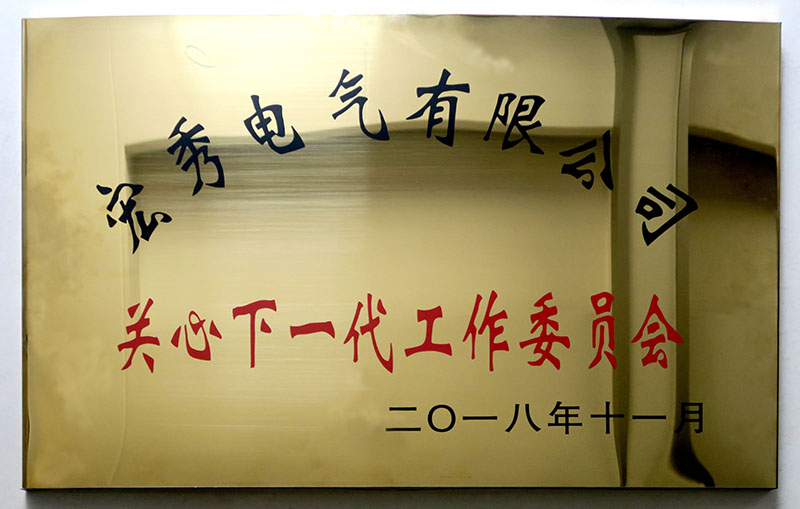 宏秀电气有限公司
关心下一代工作委员会
二〇一八年十一月